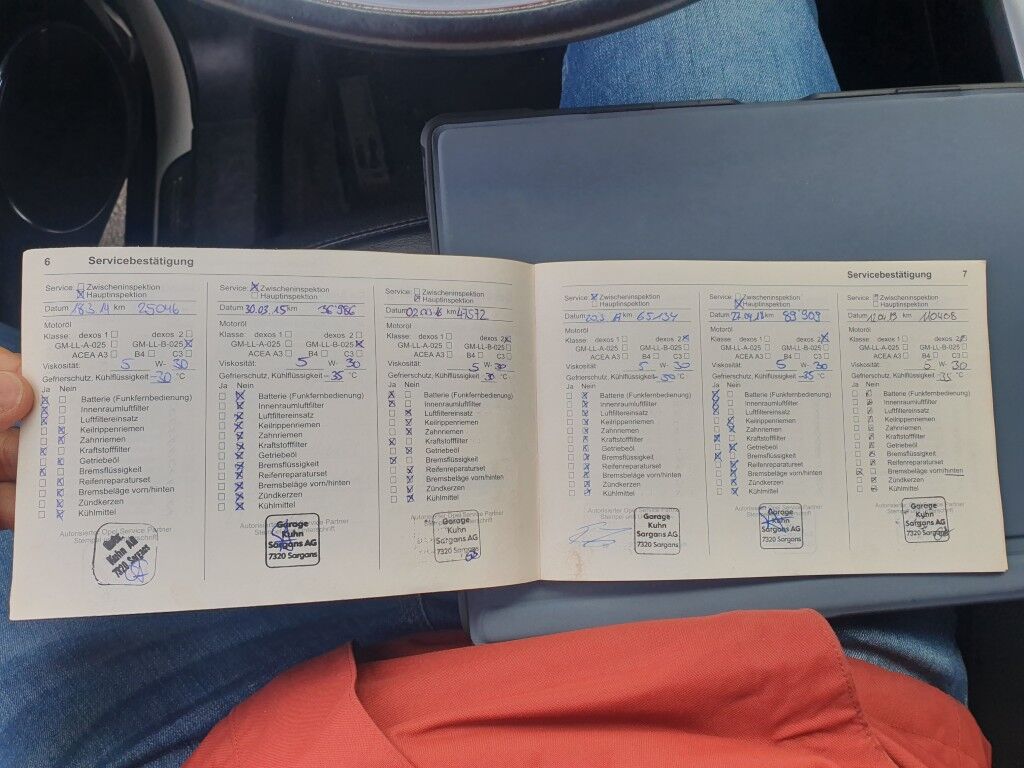 6 Servicebestätigung
Service: Zwischeninspektion
Hauptinspektion
Datum 18.3.14 km 25046
Motoröl
Klasse: dexos 1 dexos 2
GM-LL-A-025 GM-LL-B-025
ACEA A3 B4 C3
Viskosität: 5 W- 30
Gefrierschutz, Kühlflüssigkeit -30 °C
Ja Nein
Batterie (Funkfernbedienung)
Innenraumluftfilter
Luftfiltereinsatz
Keilrippenriemen
Zahnriemen
Kraftstofffilter
Getriebeöl
Bremsflüssigkeit
Reifenreparaturset
Bremsbeläge vorn/hinten
Zündkerzen
Kühlmittel
Autorisierter Opel Service Partner
Kuhn AG
7320 Sargans
Service: Zwischeninspektion
Hauptinspektion
Datum 30.03.15 km 36'986
Motoröl
Klasse: dexos 1 dexos 2
GM-LL-A-025 GM-LL-B-025
ACEA A3 B4 C3
Viskosität: 5 W- 30
Gefrierschutz, Kühlflüssigkeit -35 °C
Ja Nein
Batterie (Funkfernbedienung)
Innenraumluftfilter
Luftfiltereinsatz
Keilrippenriemen
Zahnriemen
Kraftstofffilter
Getriebeöl
Bremsflüssigkeit
Reifenreparaturset
Bremsbeläge vorn/hinten
Zündkerzen
Kühlmittel
Autorisierter Opel Service Partner
Garage
Kuhn
Sargans AG
7320 Sargans
Service: Zwischeninspektion
Hauptinspektion
Datum 02.03.16 km 47572
Motoröl
Klasse: dexos 1 dexos 2
GM-LL-A-025 GM-LL-B-025
ACEA A3 B4 C3
Viskosität: 5 W- 30
Gefrierschutz, Kühlflüssigkeit 30 °C
Ja Nein
Batterie (Funkfernbedienung)
Innenraumluftfilter
Luftfiltereinsatz
Keilrippenriemen
Zahnriemen
Kraftstofffilter
Getriebeöl
Bremsflüssigkeit
Reifenreparaturset
Bremsbeläge vorn/hinten
Zündkerzen
Kühlmittel
Garage
Kuhn
Sargans AG
7320 Sargans
Servicebestätigung 7
Service: Zwischeninspektion
Hauptinspektion
Datum km 65134
Motoröl
Klasse: dexos 1 dexos 2
GM-LL-A-025 GM-LL-B-025
ACEA A3 B4 C3
Viskosität: 5 W- 30
Gefrierschutz, Kühlflüssigkeit 30 °C
Ja Nein
Batterie (Funkfernbedienung)
Innenraumluftfilter
Luftfiltereinsatz
Keilrippenriemen
Zahnriemen
Kraftstofffilter
Getriebeöl
Bremsflüssigkeit
Reifenreparaturset
Bremsbeläge vorn/hinten
Zündkerzen
Kühlmittel
Garage
Kuhn
Sargans AG
7320 Sargans
Service: Zwischeninspektion
Hauptinspektion
Datum 27.04.18 km 89'909
Motoröl
Klasse: dexos 1 dexos 2
GM-LL-A-025 GM-LL-B-025
ACEA A3 B4 C3
Viskosität: 5 W- 30
Gefrierschutz, Kühlflüssigkeit -35 °C
Ja Nein
Batterie (Funkfernbedienung)
Innenraumluftfilter
Luftfiltereinsatz
Keilrippenriemen
Zahnriemen
Kraftstofffilter
Getriebeöl
Bremsflüssigkeit
Reifenreparaturset
Bremsbeläge vorn/hinten
Zündkerzen
Kühlmittel
Garage
Kuhn
Sargans AG
7320 Sargans
Service: Zwischeninspektion
Hauptinspektion
Datum 12.04.19 km 110408
Motoröl
Klasse: dexos 1 dexos 2
GM-LL-A-025 GM-LL-B-025
ACEA A3 B4 C3
Viskosität: 5 W- 30
Gefrierschutz, Kühlflüssigkeit 35 °C
Ja Nein
Batterie (Funkfernbedienung)
Innenraumluftfilter
Luftfiltereinsatz
Keilrippenriemen
Zahnriemen
Kraftstofffilter
Getriebeöl
Bremsflüssigkeit
Reifenreparaturset
Bremsbeläge vorn/hinten
Zündkerzen
Kühlmittel
Garage
Kuhn
Sargans AG
7320 Sargans